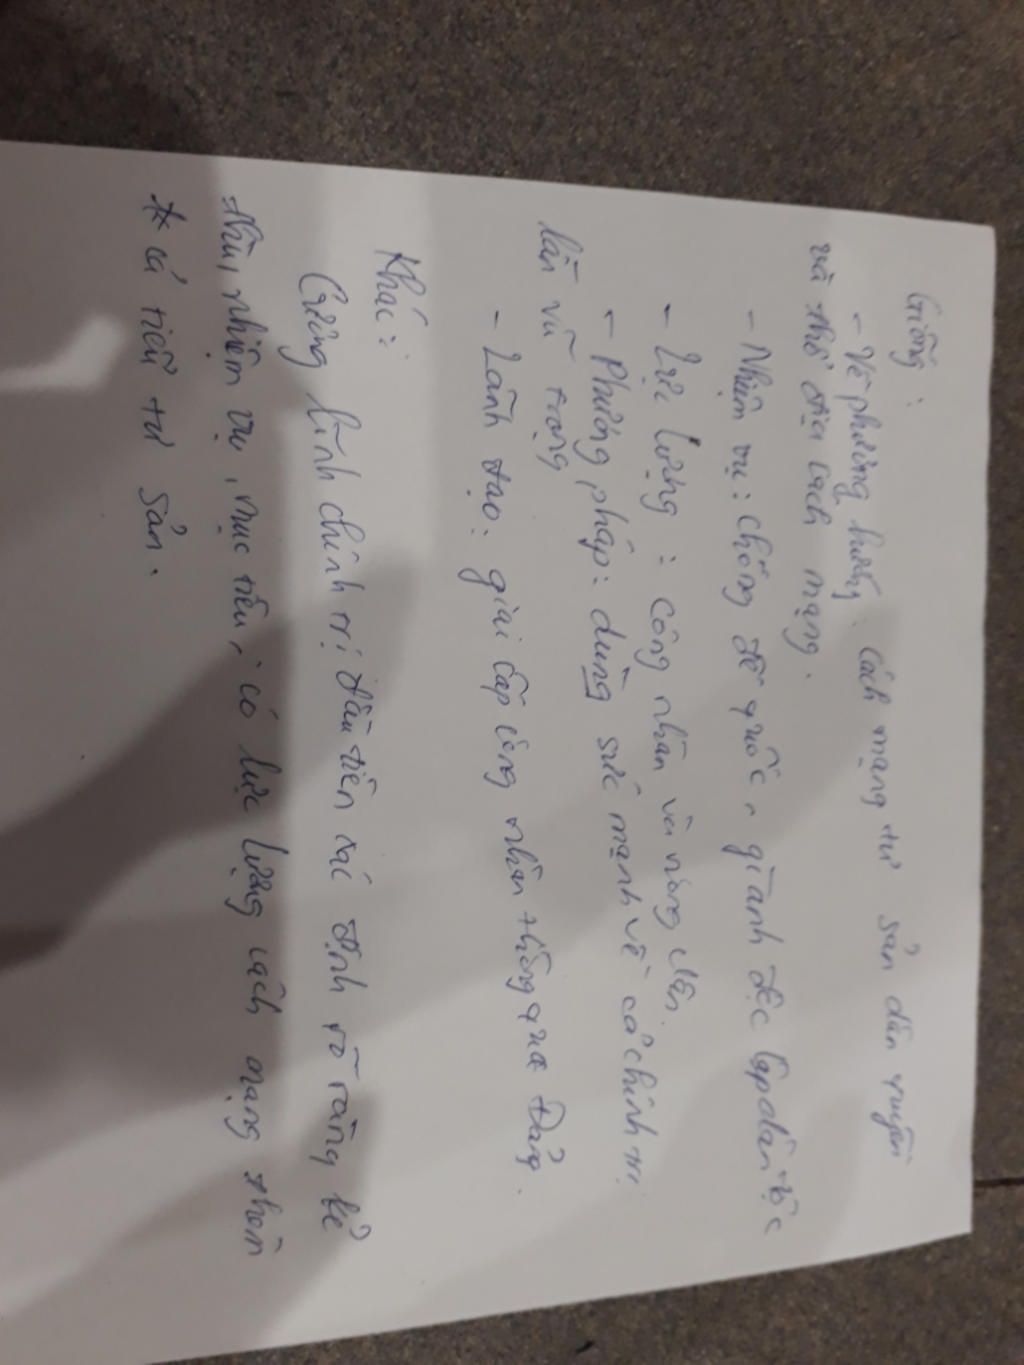 Giống :
- Về phương hướng : Cách mạng tư sản dân quyền
và thổ địa cách mạng.
- Nhiệm vụ : chống đế quốc, giành độc lập dân tộc
- Lực lượng : công nhân và nông dân.
- Phương pháp : dùng sức mạnh về cả chính trị
lẫn vũ trang
- Lãnh đạo : giai cấp công nhân thông qua Đảng.
Khác :
Cương lĩnh chính trị đầu tiên xác định rõ ràng kẻ
thù, nhiệm vụ, mục tiêu, có lực lượng cách mạng thêm
* cả tiểu tư sản.